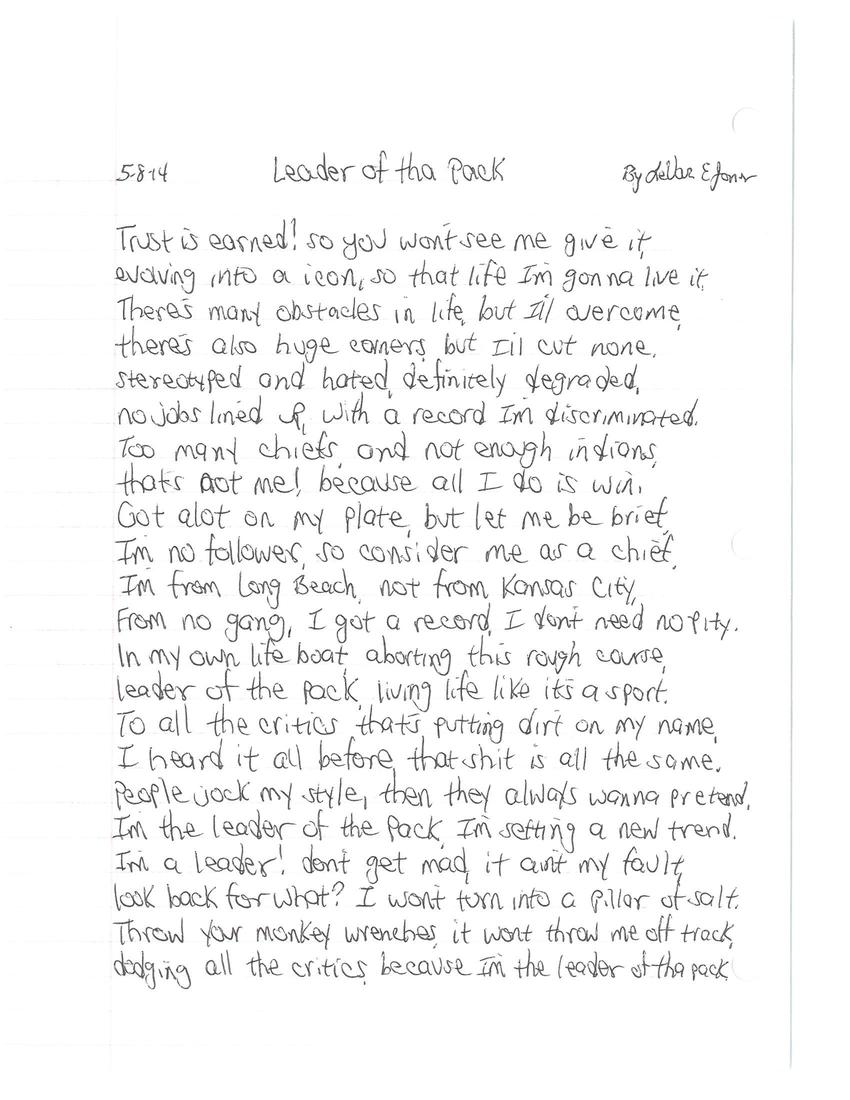 5-8-14 Leader of tha Pack By E Jones
Trust is earned! so you won't see me give it,
evolving into a icon, so that life I'm gonna live it.
There's many obstacles in life, but I'll overcome,
there's also huge corners, but I'll cut none.
stereotyped and hated, definitely degraded,
no jobs lined up, with a record I'm discriminated.
Too many chiefs, and not enough indians,
that's not me!, because all I do is win.
Got alot on my plate, but let me be brief,
I'm no follower, so consider me as a chief.
I'm from Long Beach, not from Kansas City,
From no gang, I got a record, I don't need no pity.
In my own life boat, aborting this rough course,
leader of the pack, living life like it's a sport.
To all the critics that's putting dirt on my name,
I heard it all before, that shit is all the same.
People jock my style, then they always wanna pretend,
I'm the leader of the pack, I'm setting a new trend.
I'm a leader! don't get mad, it ain't my fault,
look back for what? I won't turn into a pillar of salt.
Throw your monkey wrenches, it wont throw me off track,
dodging all the critics, because I'm the leader of tha pack.